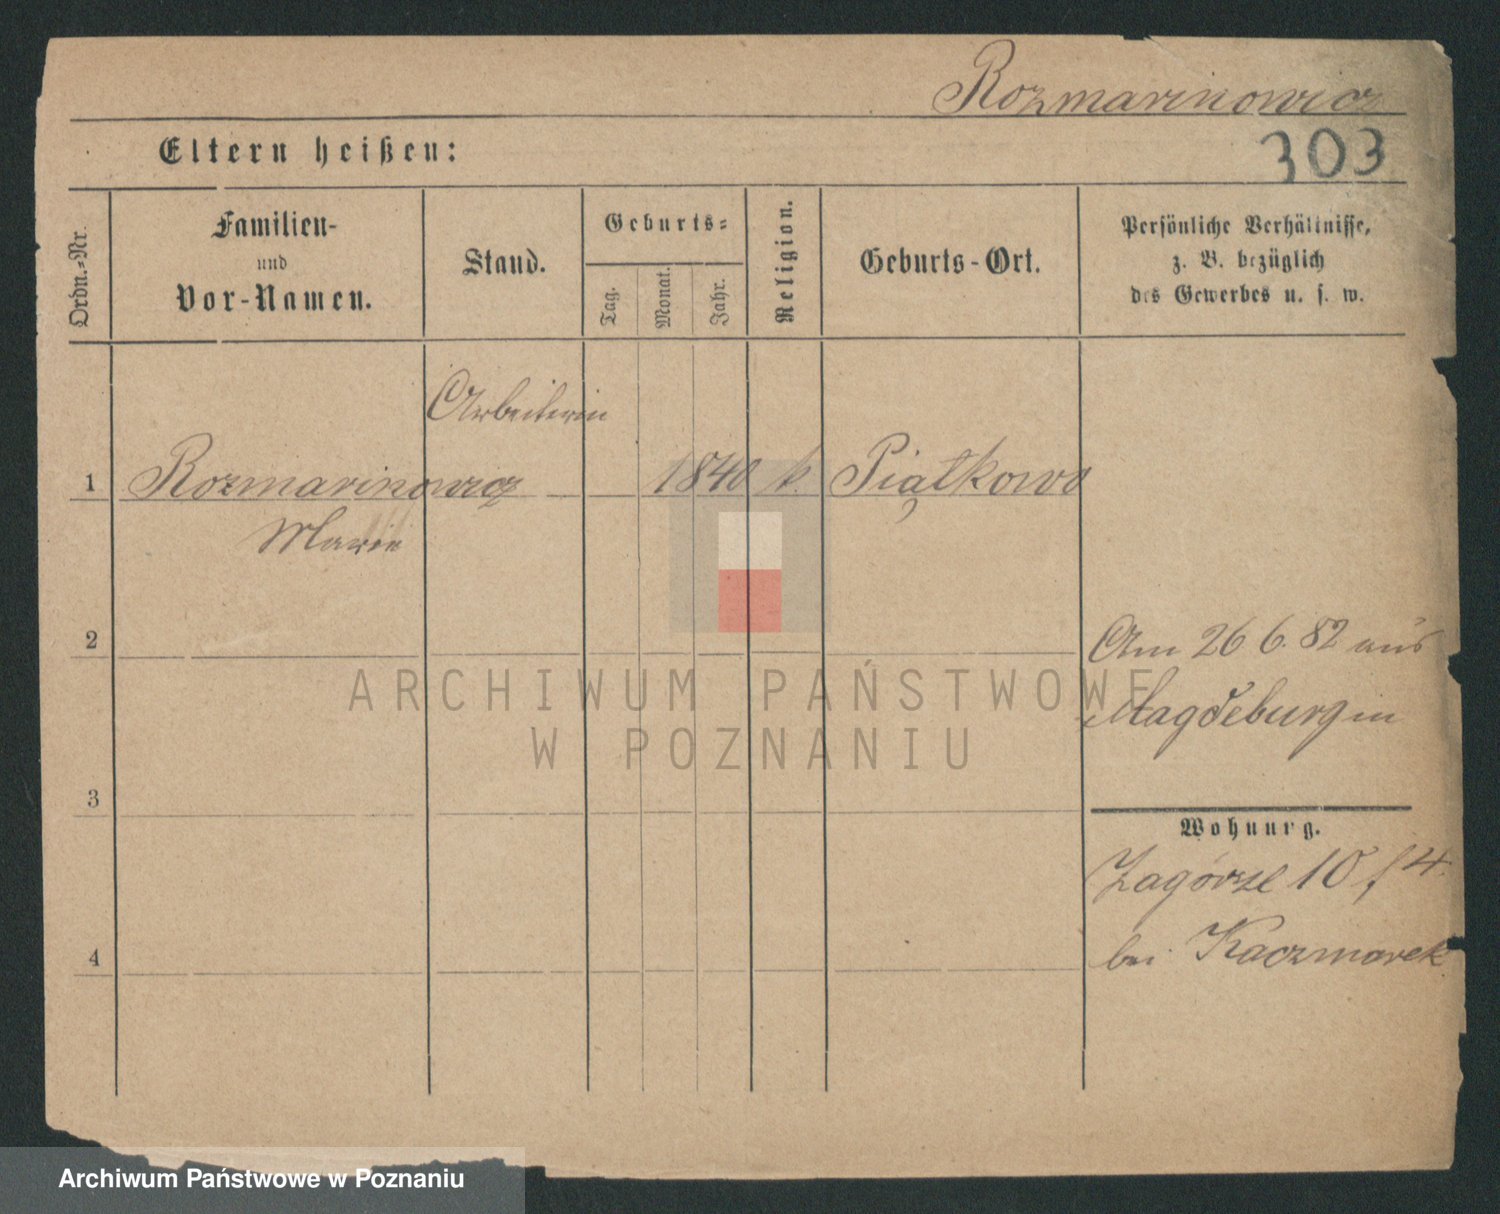 Rozmarinowicz
303
Eltern heißen:
Ordn.-Nr.
Familien-
und
Vor-Namen.
Stand.
Geburts-
Tag.
Monat.
Jahr.
Religion.
Geburts-Ort.
Persönliche Verhältnisse,
z. B. bezüglich
des Gewerbes u. s. w.
Arbeiterin
1 Rozmarinowicz 1840 k. Piątkowo
Marie
2
Am 26 6. 82 aus
Magdeburg in
ARCHIWUM PAŃSTWOWE
W POZNANIU
3
Wohnung.
Zagórze 10 f 4.
4
bei Kaczmarek
Archiwum Państwowe w Poznaniu